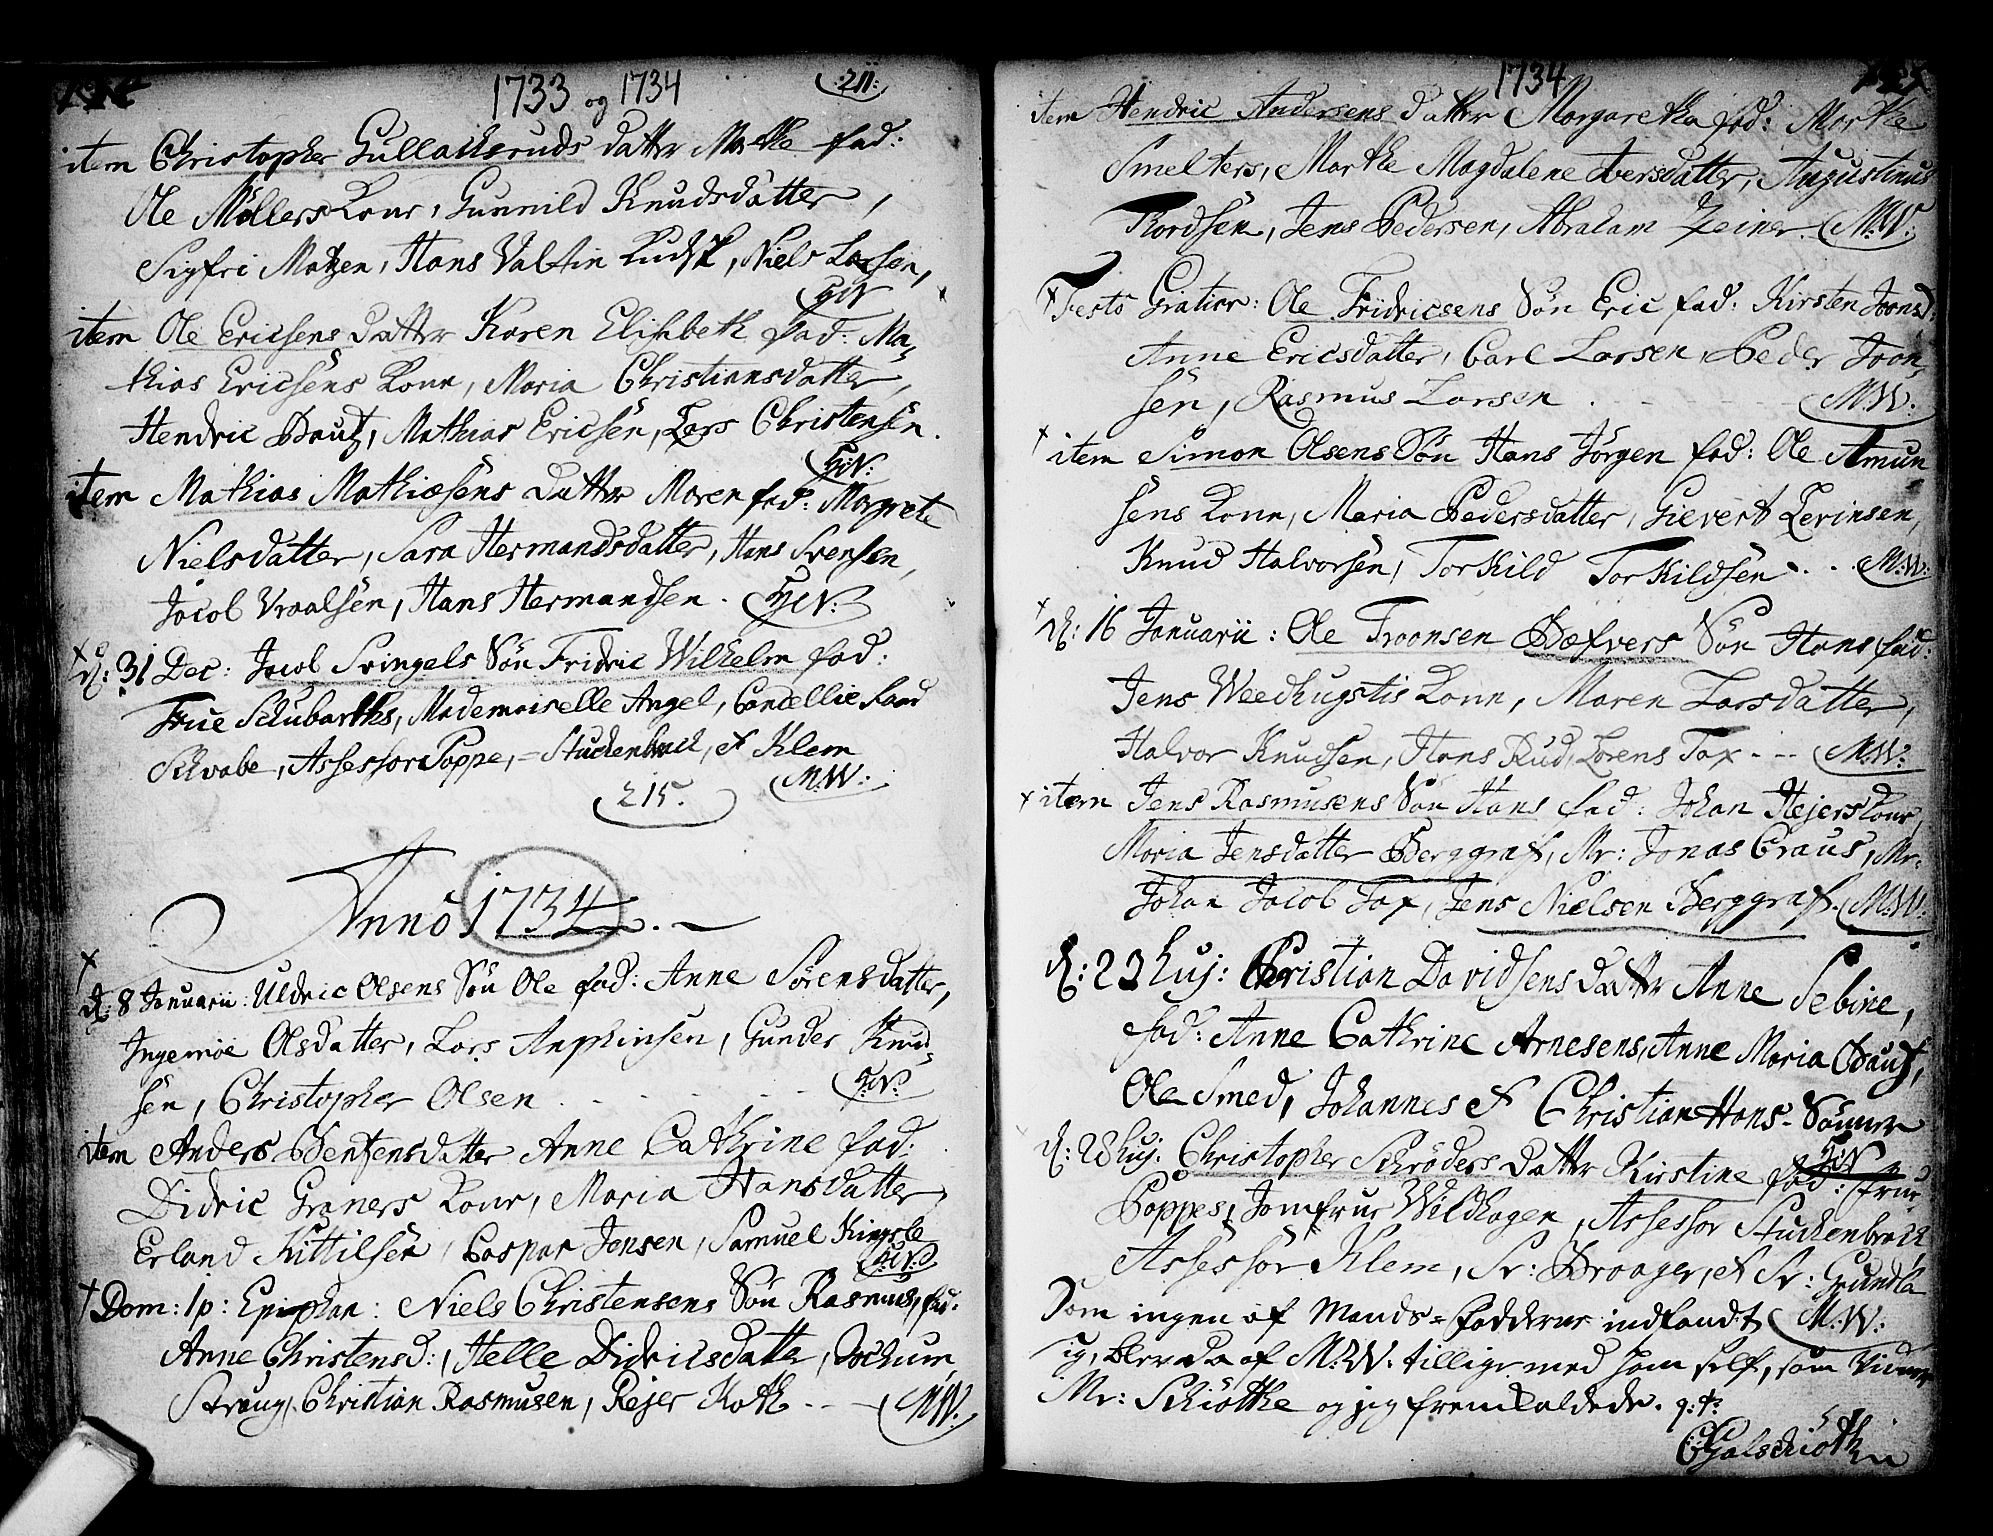 1733 og 1734
211:
item Christopher Gullachsruds datter Marthe fad:
Ole Möllers Konr, Gunnild Knudsdatter,
Sigfri Matzen, Hans Valtin Rudsk, Niels Larsen,
item Ole Ericsens datter Karen Elisabeth fad: Ma-
thias Ericsens Konn, Maria Christiansdatter,
Hendric Bautz, Mathias Ericsen, Lars Christensen.
item Mathias Mathiæsens datter Maren fad: Margrete
Nielsdatter, Sara Hermandsdatter, Hans Svensen,
Jacob Vroalsen, Hans Hermandsen.
d: 31 Dec: Jacob Svingels Sön Fridric Wilhelm fad:
Frue Schubarths, Mademoiselle Angel, Cancellie Raad
Schvabe, Assessor Poppe, = Stuckenbrock, & Klem
M:W:
215.
Anno 1734.
d: 8 Januarii: Uldric Olsens Sön Ole fad: Anne Sörensdatter,
Ingemöe Olsdatter, Lars Amphinsen, Gunder Knud-
sen, Christopher Olsen
item Anders Bentsens datter Anne Cathrine fad:
Didric Graners Konr, Maria Hansdatter,
Erland Kittilsen, Caspar Jonsen, Samuel Kingsle
Dom: 1 p: Epiphan: Niels Christensens Sön Rasmus, fad:
Anne Christensd:, Helle Didricsdatter, Jochum
Straug, Christian Rasmusen, Rejer Koth - - M:W:
1734
item Hendric Andersens datter Margaretha fad: Marthe
Smelters, Marthe Magdalene Iversdatter, Augustinus
Thordsen, Jens Pedersen, Abraham Zeiner. M:W:
Festo Gratiar: Ole Fridricsens Sön Eric fad: Kirsten Joensd:
Anne Ericsdatter, Carl Larsen, Peder Joen-
sen, Rasmus Larsen . - - M:W.
item Simon Olsens Sön Hans Jörgen fad: Ole Amun
sens Konn, Maria Pedersdatter, Gievert Levinsen,
Knud Halvorsen, Torkild Torkildsen . . M:W:
d: 16 Januarii: Ole Troensen Bæfvers Sön Hans fad:
Jens Weedhugstis Konn, Maren Larsdatter,
Halvor Knudsen, Hans Rud, Lorens Fax - - M:W:
item Jens Rasmusens Sön Hans fad: Johan Hejers Konr,
Maria Jensdatter Berggraf, Mr: Jonas Craus, Mr:
Johan Jacob Fax, Jens Nielsen Berggraf. M:W:
d: 23 huj: Christian Davidsens datter Anne Sebine,
fad: Anne Cathrine Arnesens, Anne Maria Bautz,
Ole Smed, Johannes & Christian Hans-Sönner
d: 28 huj: Christopher Schröders datter Kirstine fad: Frue
Poppes, Jomfrue Wildhagen, Assessor Stuckenbrock
Assessor Klem, Sr: Broager, & Sr: Grundla
Som ingen af Mands-Fadderne indfandt M:W:
sig, blev da af M:W: tillige med ham self, som Vidner
Mr: Schiötte og jeg fremkaldede. q:t:
Galschiött